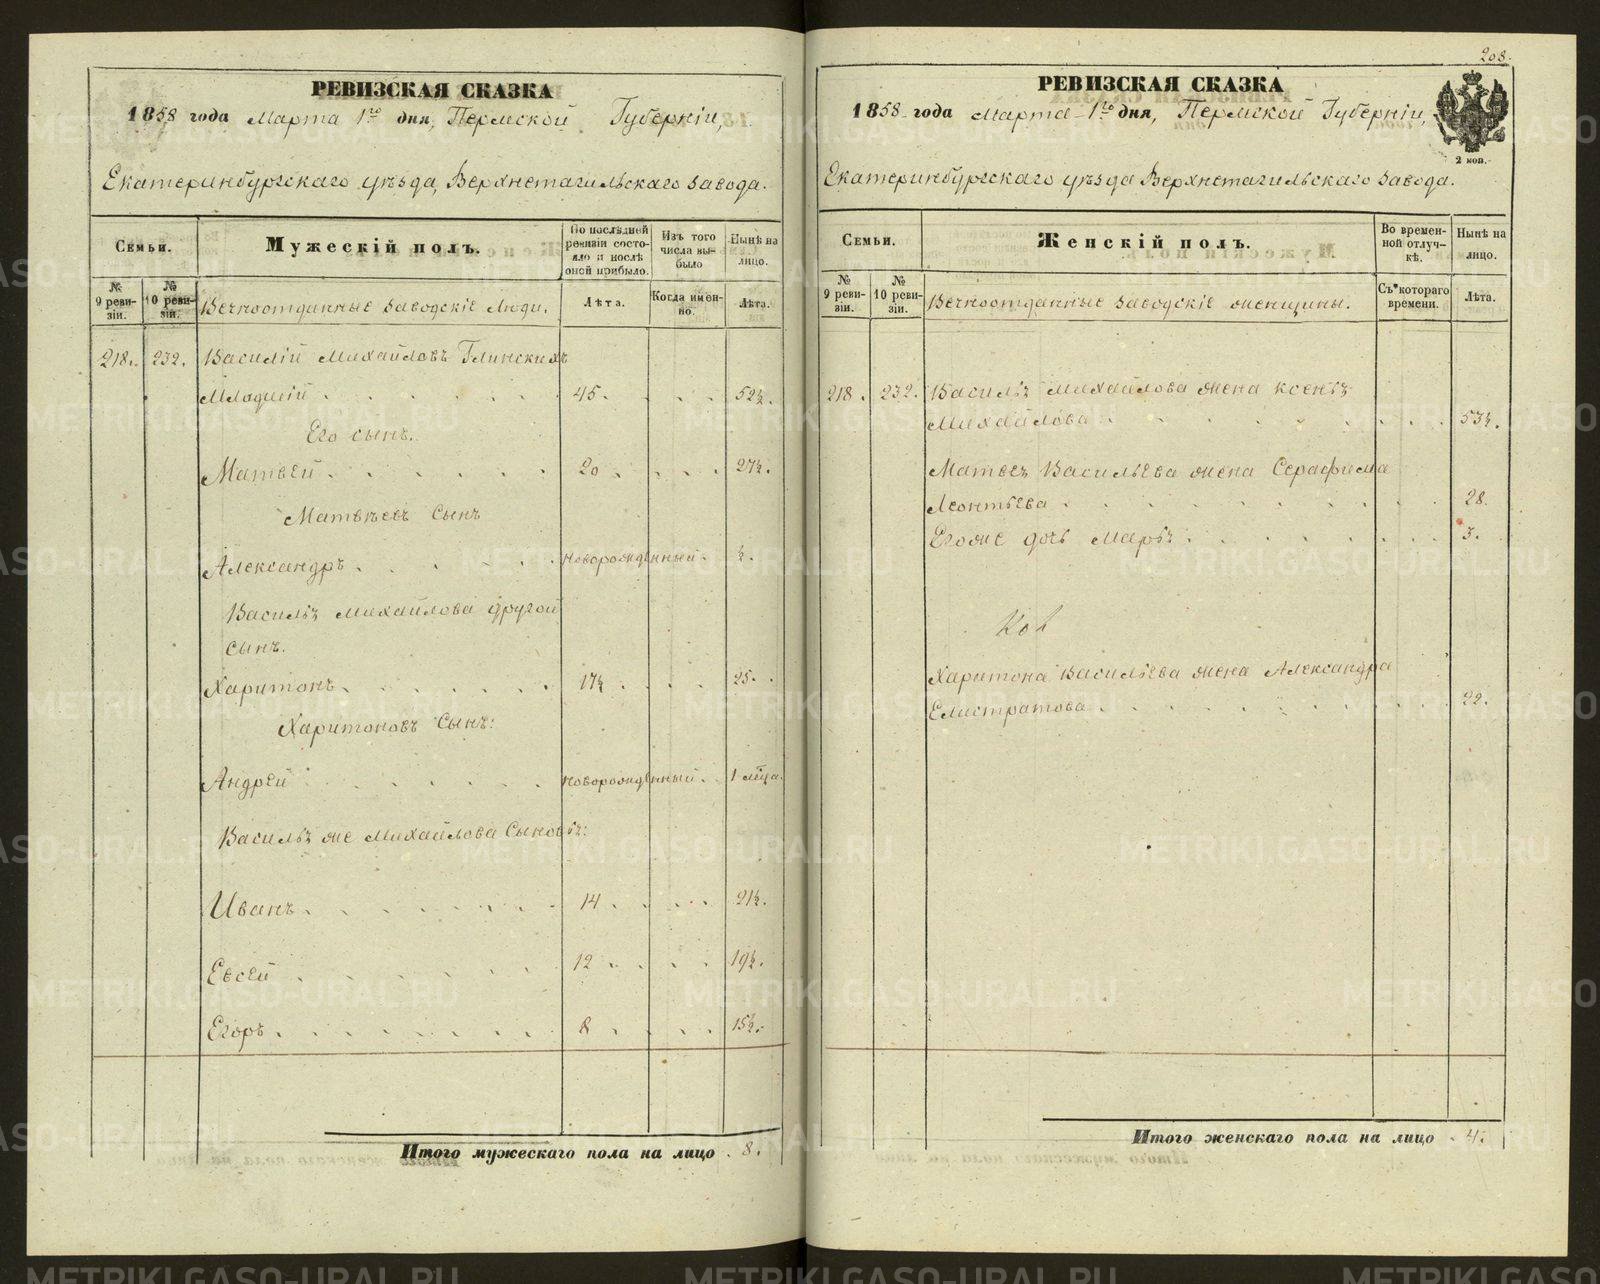 РЕВИЗСКАЯ СКАЗКА
1858 года Марта 1го дня, Пермской Губерніи,
Екатеринбургскаго уѣзда, Верхнетагильскаго завода.
Семьи.
Мужескій полъ.
По послѣдней ревизіи состояло и послѣ оной прибыло.
Изъ того числа выбыло
Нынѣ на лицо.
№ 9 ревизіи.
№ 10 ревизіи.
Вечноотданные заводскіе Люди.
Лѣта.
Когда именно.
Лѣта.
218. 232. Василій Михайловъ Глинскихъ
Младшій 45. 52½.
Его сынъ.
Матвей 20 27½.
Матвѣевъ сынъ
Александръ новорожденный. ½.
Василья Михайлова другой
сынъ.
Харитонъ 17½ 25.
Харитоновъ Сынъ:
Андрей новорожденный. 1 мѣца.
Василья же Михайлова Сыновья:
Иванъ 14 21½.
Евсей 12 19½.
Егоръ 8 15½.
Итого мужескаго пола на лицо 8.
208.
РЕВИЗСКАЯ СКАЗКА
1858 года Марта 1го дня, Пермской Губерніи,
2 коп.
Екатеринбургскаго уѣзда Верхнетагильскаго завода.
Семьи.
Женскій полъ.
Во временной отлучкѣ.
Нынѣ на лицо.
№ 9 ревизіи.
№ 10 ревизіи.
Вечноотданные заводскіе женщины.
Съ котораго времени.
Лѣта.
218. 232. Василья Михайлова жена Ксенья
Михайлова 53½.
Матвея Васильева жена Серафима
Леонтьева 28.
Его же дочь Марья 3.
Харитона Васильева жена Александра
Елистратова 22.
Итого женскаго пола на лицо 4.
METRIKI.GASO-URAL.RU